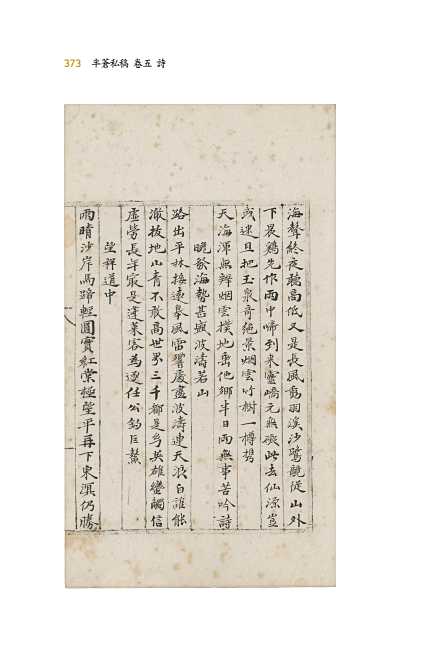 373 半蒼私稿 卷五 詩
海聲終夜聽高低又是長風動羽溪沙鷺競從山外
下晨鷄先作雨中啼到來靈嶠元無礙此去仙源豈
或迷且把玉泉奇絶景烟雲竹樹一樽携
天海渾無辨烟雲撲地垂他鄉半日雨無事苦吟詩
晚發海勢甚盛波濤若山
路出平林接遠皋風雷響處盡波濤連天浪白誰能
澈拔地山青不敢高世界三千都是亐英雄蠻觸信
虛勞長年最是蓬萊客為逐任公釣巨鰲
望祥道中
雨晴沙岸馬蹄輕圓實紅棠極望平再下東溟仍勝